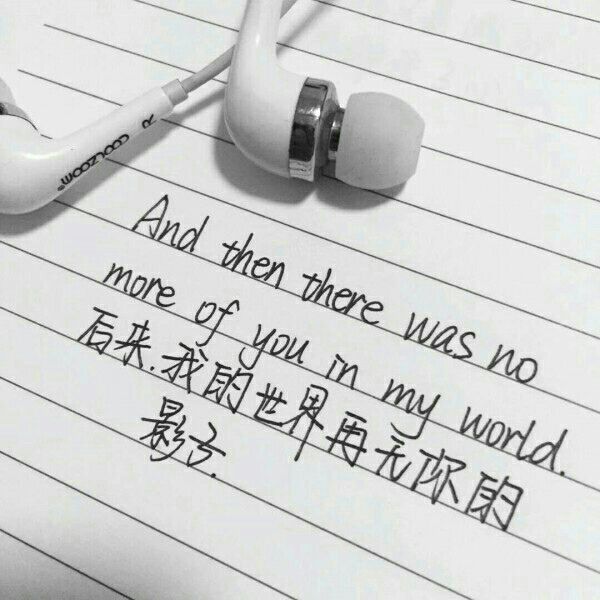 COOLZOOM R
And then there was no
more of you in my world.
后来.我的世界再无你的
影子.